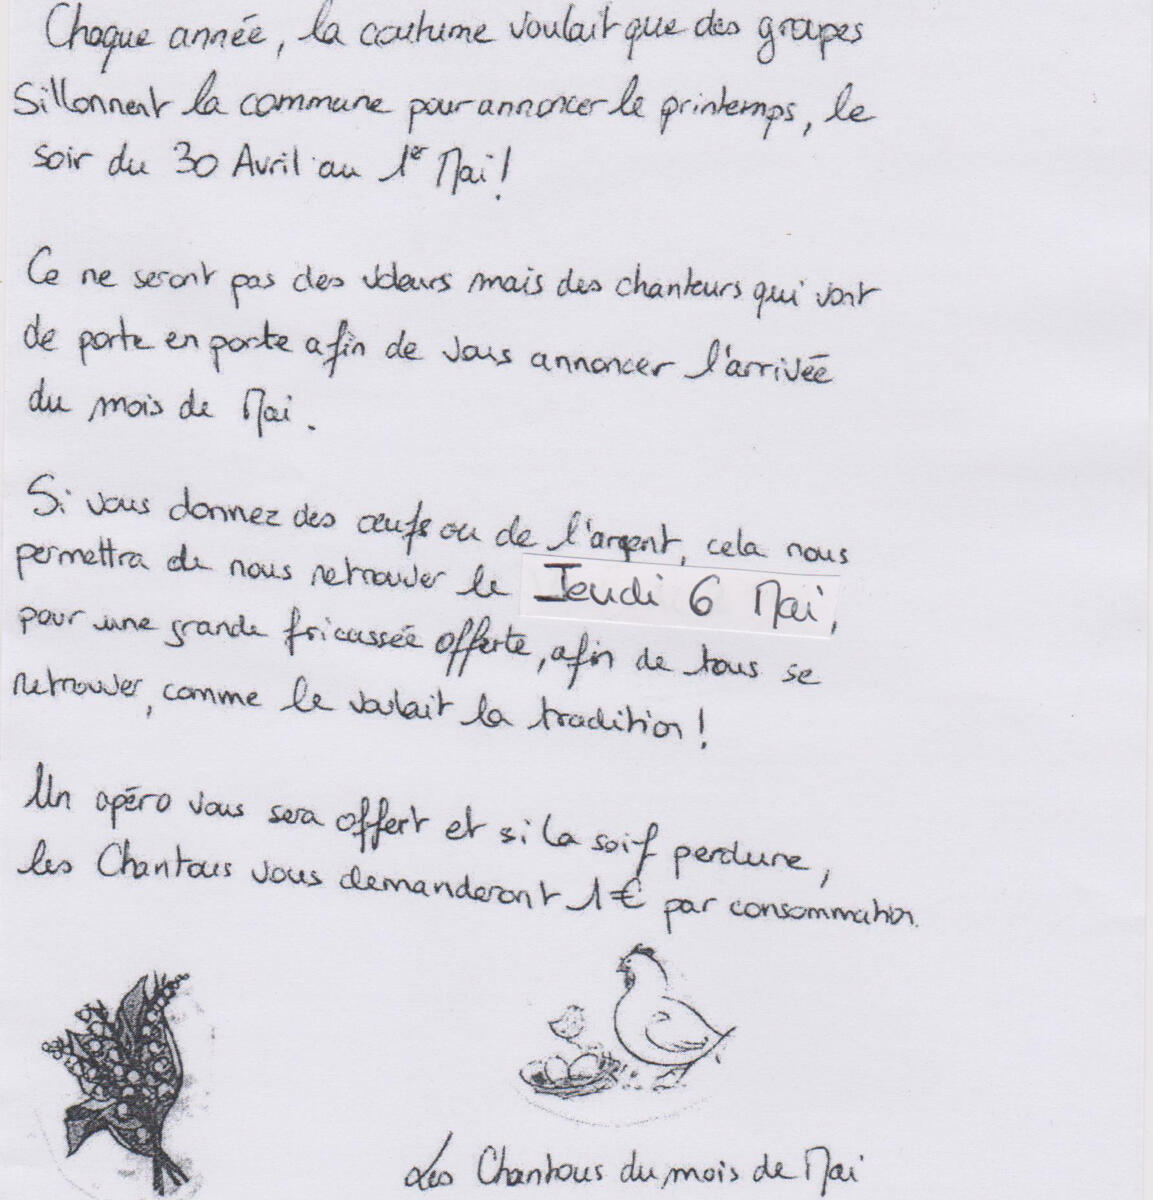 Chaque année, la coutume voulait que des groupes
Sillonnent la commune pour annoncer le printemps, le
soir du 30 Avril au 1er Mai!
Ce ne seront pas des voleurs mais des chanteurs qui vont
de porte en porte afin de vous annoncer l'arrivée
du mois de Mai.
Si vous donnez des œufs ou de l'argent, cela nous
permettra de nous retrouver le Jeudi 6 Mai,
pour une grande fricassée offerte, afin de tous se
retrouver, comme le voulait la tradition!
Un apéro vous sera offert et si la soif perdure,
les Chantous vous demanderont 1€ par consommation.
Les Chantous du mois de Mai